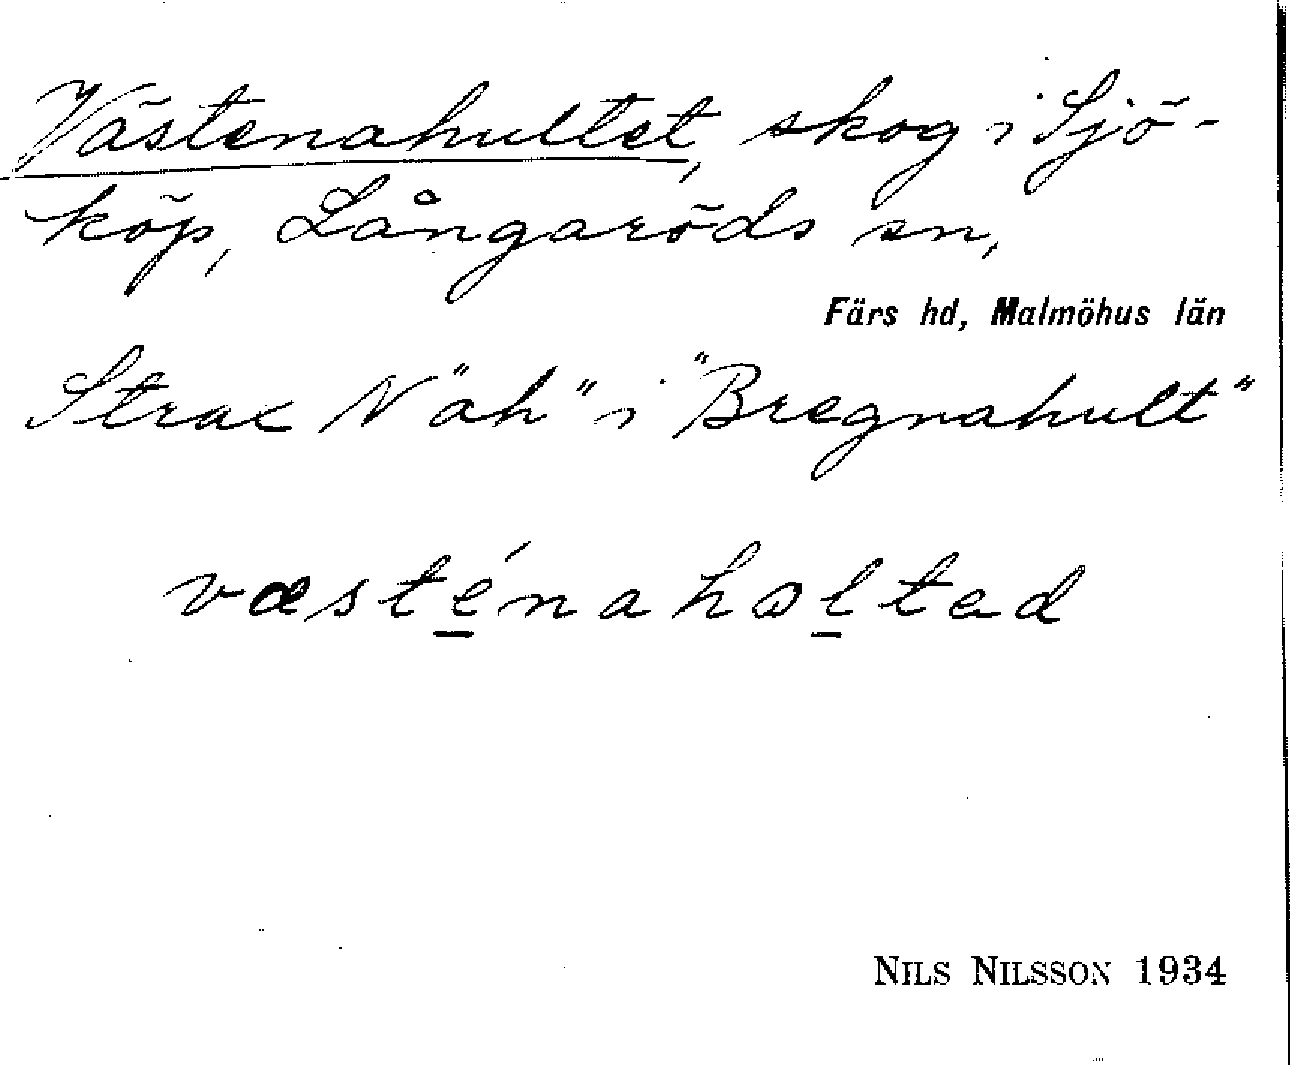 Västenahultet, skog i Sjö-
köp, Långaröds sn,
Färs hd, Malmöhus län
Strax N "äh" i "Bregnahult"
væsténahøltad
NILS NILSSON 1934